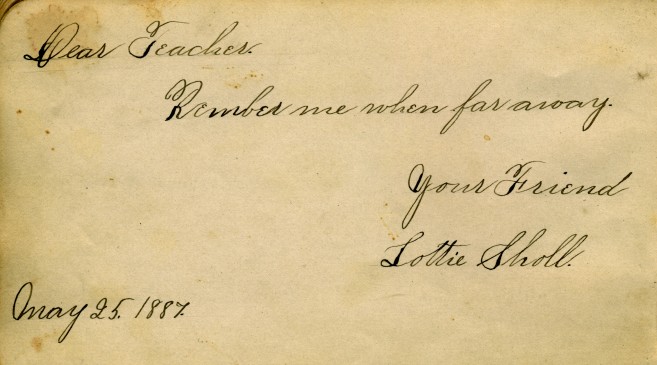 Dear Teacher.
Rember me when far away.
Your Friend
Lottie Sholl.
May 25. 1887.